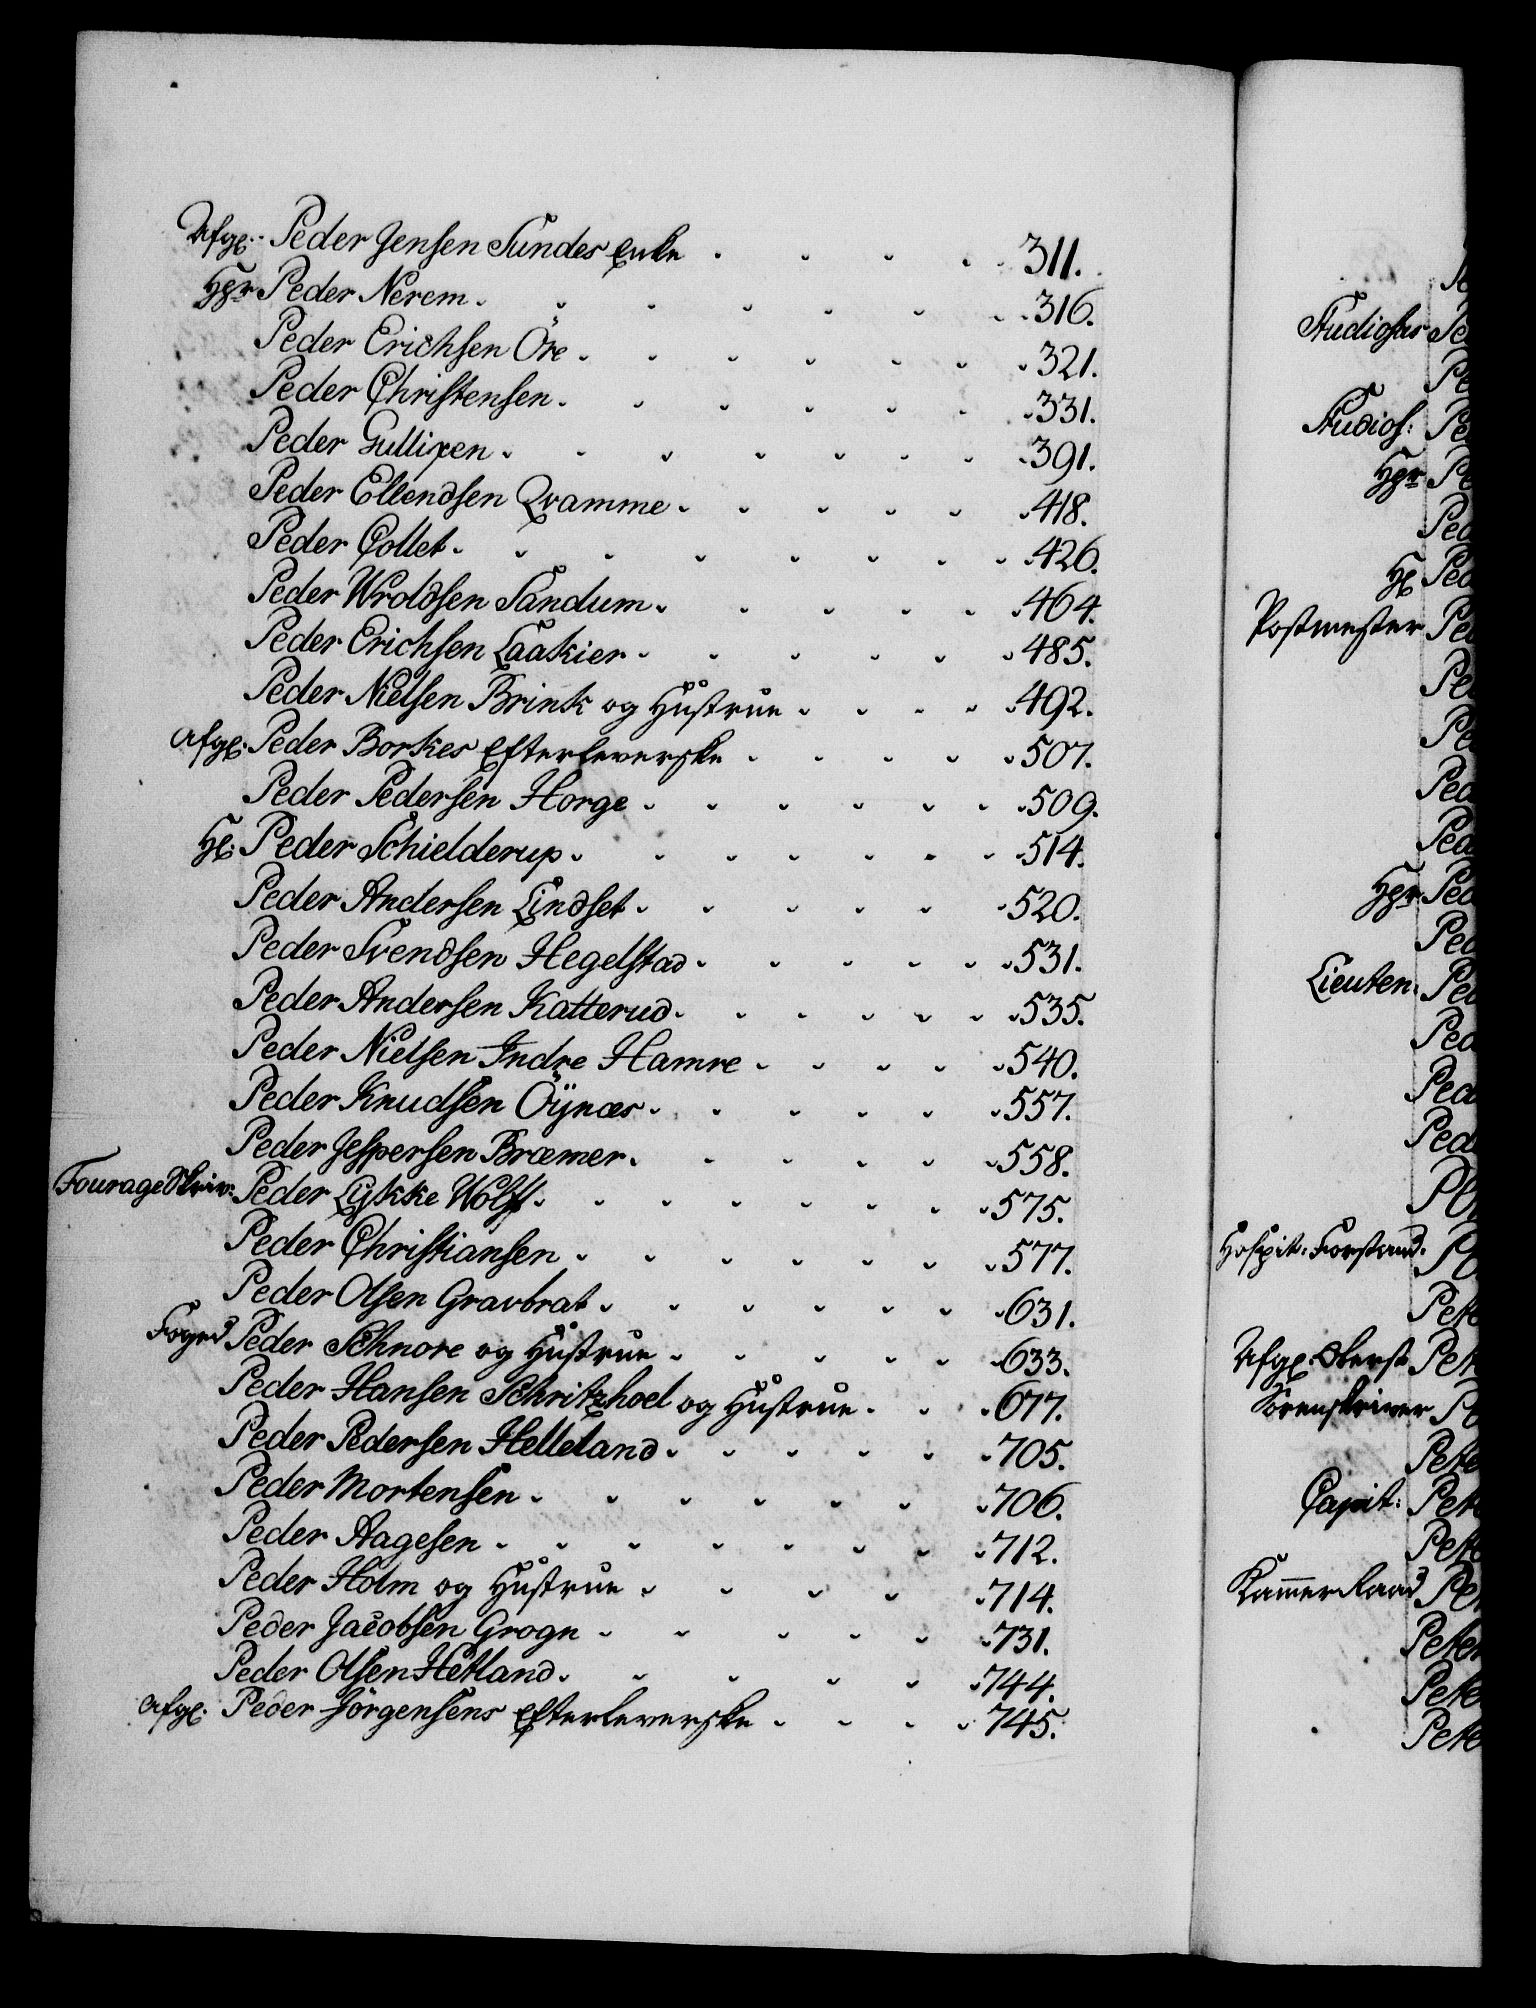 Afgl. Peder Jensen Sundes Enke 311.
Hr Peder Nerem 316.
Peder Erichsen Öre 321.
Peder Christensen 331.
Peder Gullixen 391.
Peder Ellendsen Qvamme 418.
Peder Collet 426.
Peder Wroldsen Sandum 464.
Peder Erichsen Laakier 485.
Peder Nielsen Brink og Hustrue 492.
Afgl. Peder Borkes Efterleverske 507.
Peder Pedersen Horge 509.
Hl. Peder Schielderup 514.
Peder Andersen Lindset 520.
Peder Svendsen Hegelstad 531.
Peder Andersen Katterud 535.
Peder Nielsen Indre Hamre 540.
Peder Knudsen Öÿnæs 557.
Peder Jespersen Bræmer 558.
Fourage Skriv: Peder Lykke Wolff 575.
Peder Christiansen 577.
Peder Olsen Gravbrat 631.
Foged Peder Schnore og Hustrue 633.
Peder Hansen Schritzhoel og Hustrue 677.
Peder Pedersen Helleland 705.
Peder Mortensen 706.
Peder Aagesen 712.
Peder Holm og Hustrue 714.
Peder Jacobsen Grogn 731.
Peder Olsen Hetland 744.
Afgl. Peder Jörgensens Efterleverske 745.
Studiosus
Studios:
Hr
Hl
Postmester
Hr
Lieuten:
Hospit: Forstand:
Afgl. Oberst
Sorenskriver
Capit:
Kammer Raad